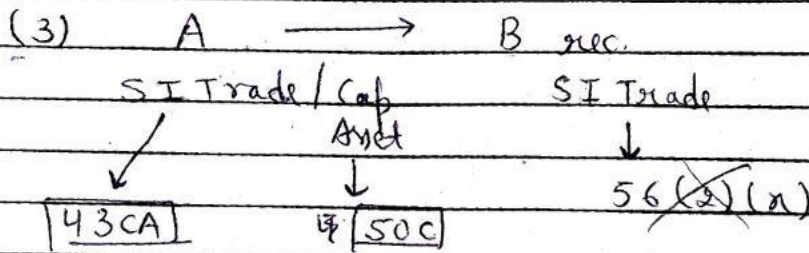 (3) A → B rec.
SI Trade / Cap Asset SI Trade
43CA 50C 56(2)(x)